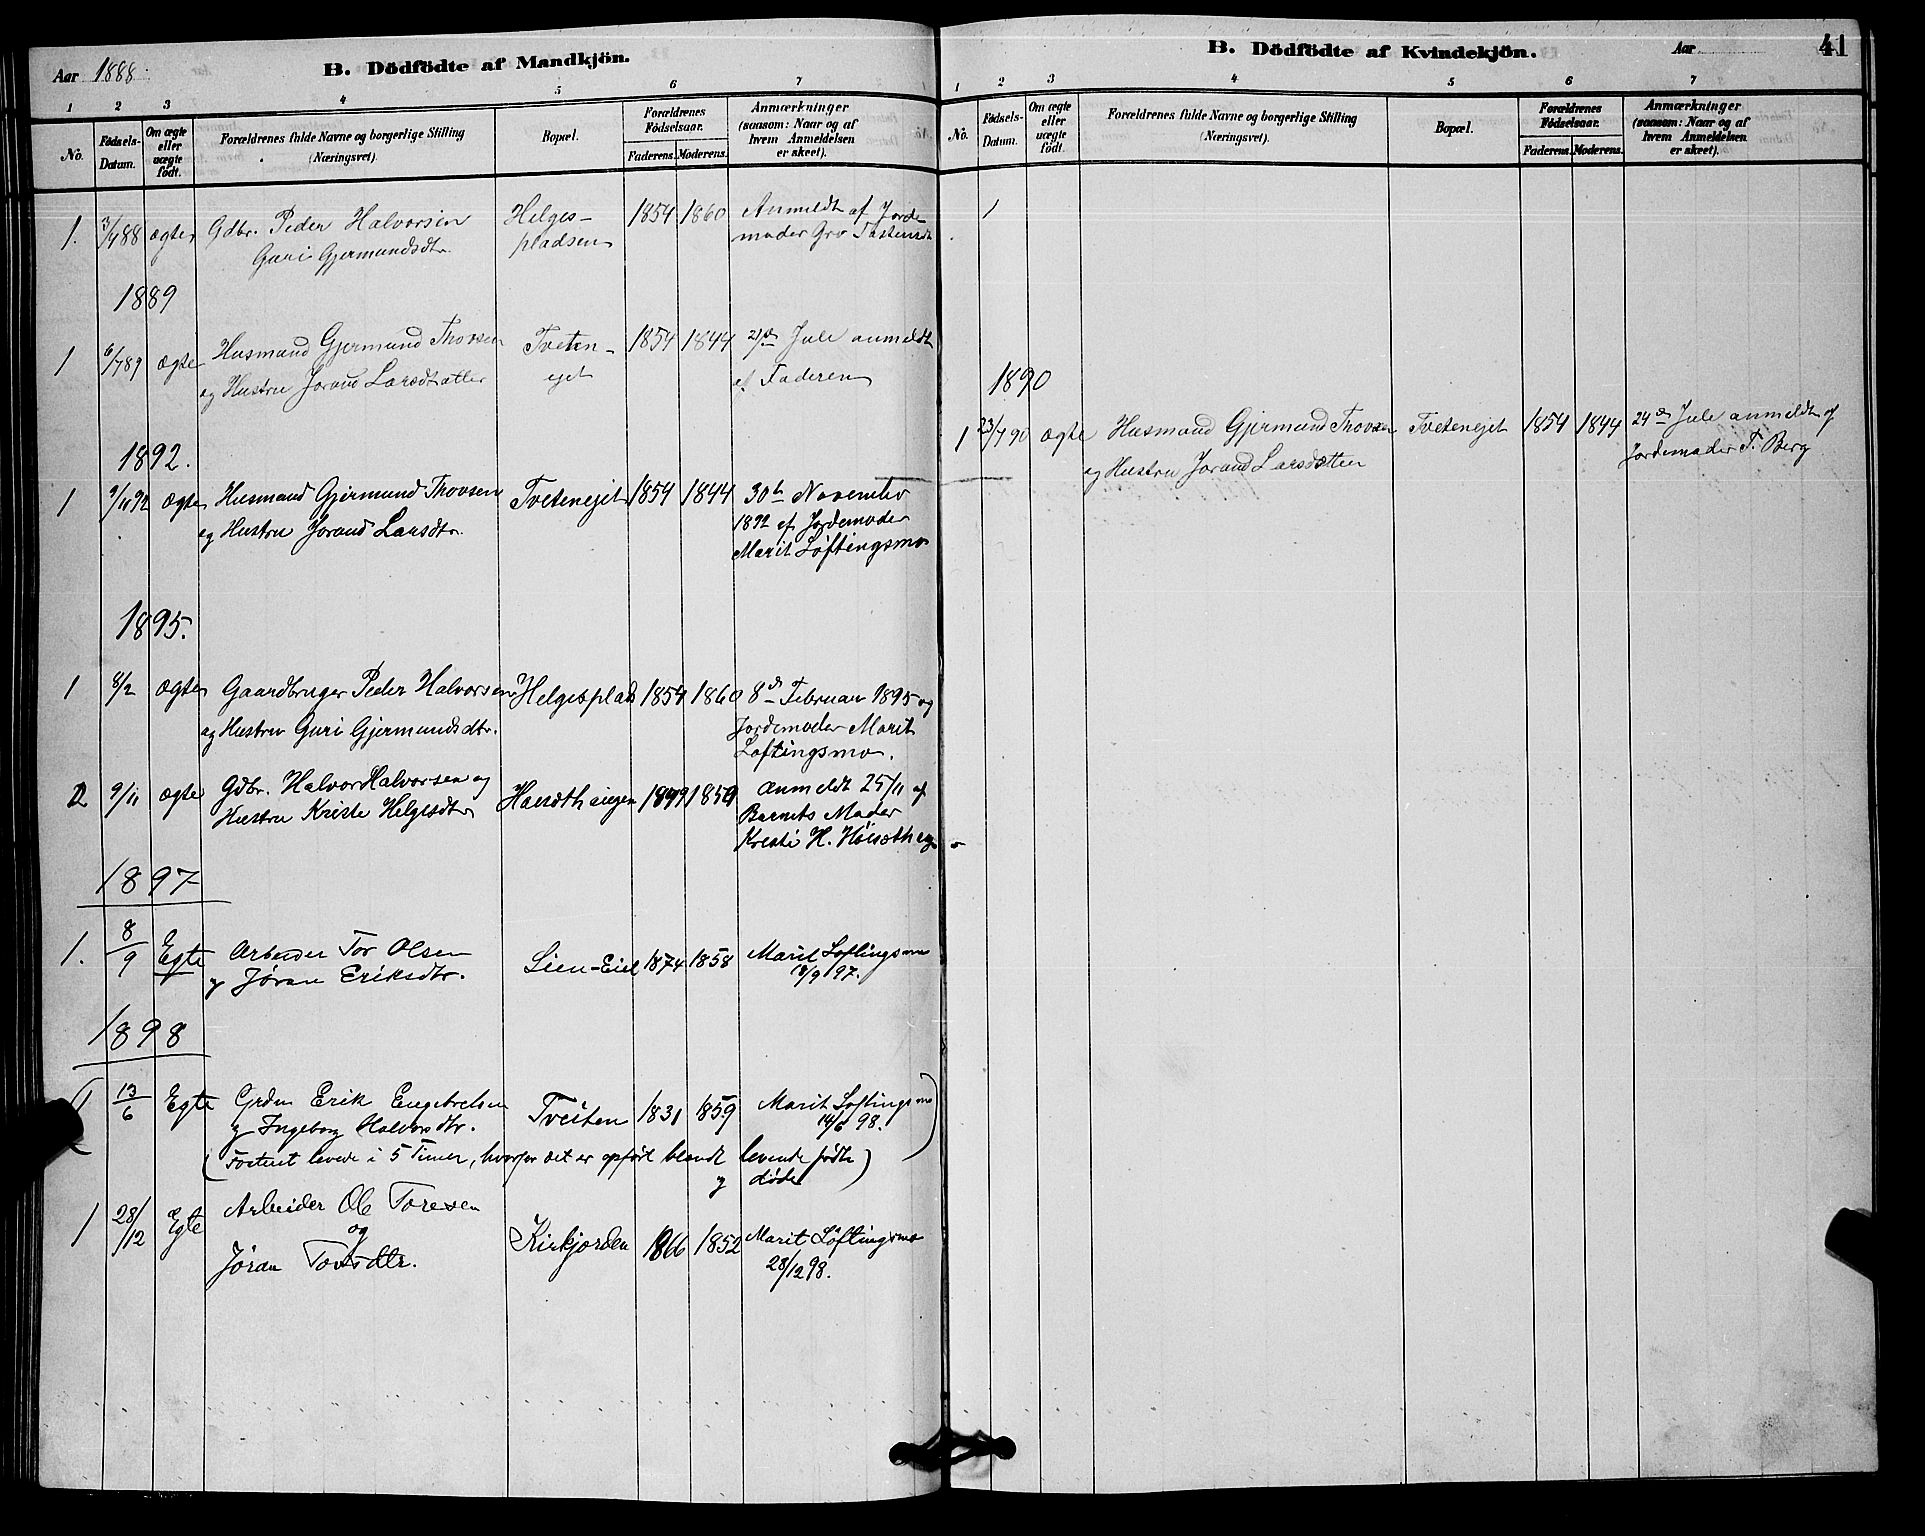 Aar 1888.
B. Dödfödte af Mandkjön.
1 2 3 4 5 6 7
No.
Födsels-Datum.
Om ægte eller uægte födt.
Forældrenes fulde Navne og borgerlige Stilling
(Næringsvei).
Bopæl.
Forældrenes Födselsaar.
Faderens. Moderens.
Anmærkninger
(saasom: Naar og af
hvem Anmeldelsen
er skeet).
1. 3/7 88 ægte Gdbr. Peder Halvorsen Helges- 1854 1860 Anmeldt af Jorde
Guri Gjermundsdtr. pladsen moder Gro
1889
1 6/7 89 ægte Husmand Gjermund Thovsen Tveten- 1854 1844 Jule anmeldt
og Hustru Jorand Larsdatter ejet af Faderen
1892.
1 9/11 92 ægte Husmand Gjermund Thovsen Tvetenejet 1854 1844 30te November
og Hustru Jorand Larsdtr. 1892 af Jordemoder
Marit Løftingsmo
1895.
1 8/2 ægte Gaardbruger Peder Halvorsen Helgesplads 1854 1860 8de Februar 1895 og
og Hustru Guri Gjermundsdtr. Jordemoder Marit
Løftingsmo.
2 9/11 ægte Gdbr. Halvor Halvorsen og 1849 1859 anmeldt 25/11 af
Hustru Kriste Helgesdtr Barnets Moder
Kristi H.
1897
1. 8/9 Egte Arbeider Tor Olsen Lien-Eiet 1874 1858 Marit Løftingsmo
og Jøran Eriksdtr. 97.
1898
(1 13/6 Egte Grdm Erik Engebretsen Tveiten 1831 1859 Marit Løftingsmo
og Ingeborg Halvorsdtr. 14/6 98.)
(Fosteret levede i 5 Timer, hvorfor det er opført blandt levende fødte
og døde)
1 28/12 Egte Arbeider Ole Toresen
og Kirkjorden 1866 1852 Marit Løftingsmo
Jøran Tovsdtr. 28/12 98.
B. Dödfödte af Kvindekjön.
Aar
41
1 2 3 4 5 6 7
No.
Födsels-Datum.
Om ægte eller uægte födt.
Forældrenes fulde Navne og borgerlige Stilling
(Næringsvei).
Bopæl.
Forældrenes Födselsaar.
Faderens. Moderens.
Anmærkninger
(saasom: Naar og af
hvem Anmeldelsen
er skeet).
1890
1 23/7 90 ægte Husmand Gjermund Thovsen Tvetenejet 1854 1844 24de Jule anmeldt af
og Hustru Jorand Larsdatter Jordemoder T. Berg